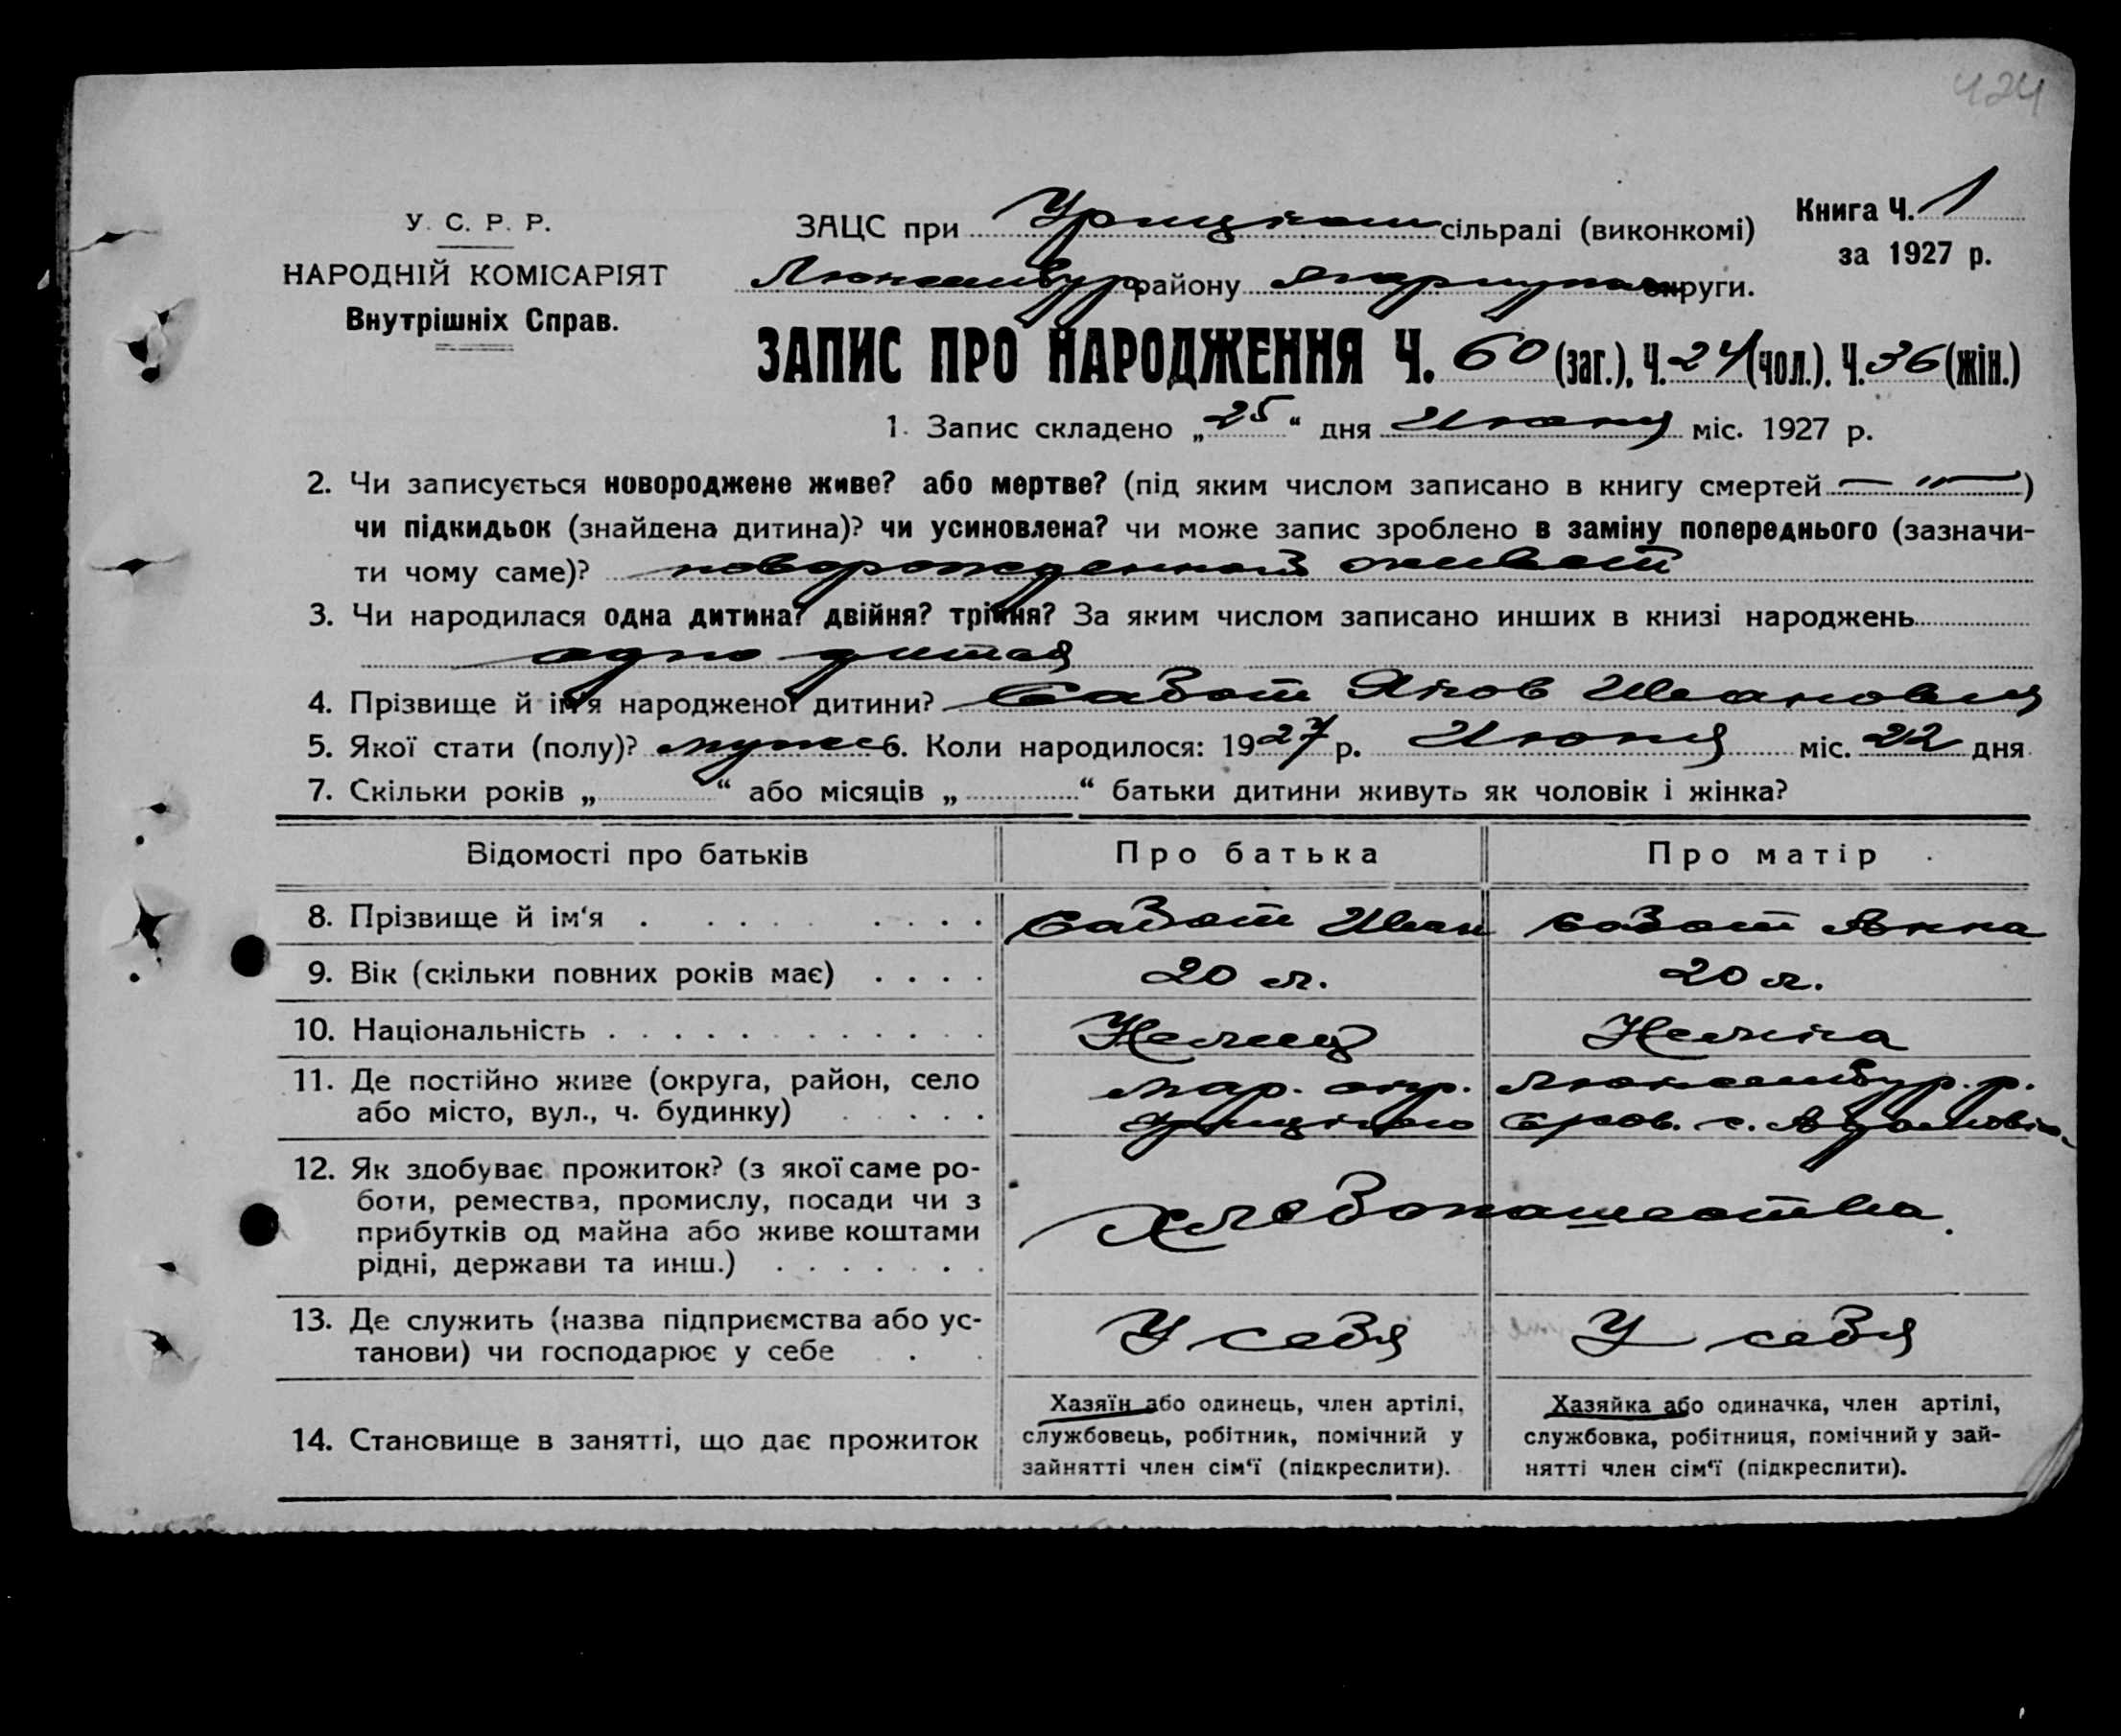 424
У. С. Р. Р.
НАРОДНІЙ КОМІСАРІЯТ
Внутрішніх Справ.
ЗАЦС при Урицком сільраді (виконкомі)
Книга Ч. 1
за 1927 р.
Люксембур. району Мариупол. округи.
ЗАПИС ПРО НАРОДЖЕННЯ Ч. 60 (заг.), Ч. 24 (чол.), Ч. 36 (жін.)
1. Запис складено „25“ дня Июня міс. 1927 р.
2. Чи записується новороджене живе? або мертве? (під яким числом записано в книгу смертей — " —)
чи підкидьок (знайдена дитина)? чи усиновлена? чи може запис зроблено в заміну попереднього (зазначи-
ти чому саме)? новорожденной живой
3. Чи народилася одна дитина? двійня? трійня? За яким числом записано инших в книзі народжень
одно дитая
4. Прізвище й ім'я народженої дитини? Бабот Яков Иванович
5. Якої стати (полу)? мужс 6. Коли народилося: 1927 р. Июня міс. 22 дня
7. Скільки років „ “ або місяців „ “ батьки дитини живуть як чоловік і жінка?
Відомості про батьків Про батька Про матір
8. Прізвище й ім'я Бабот Иван Бабот Анна
9. Вік (скільки повних років має) 20 л. 20 л.
10. Національність Немец Немкка
11. Де постійно живе (округа, район, село Мар. окр. Люксембур. р.
або місто, вул., ч. будинку) Урицкого с.
12. Як здобуває прожиток? (з якої саме ро-
боти, ремества, промислу, посади чи з
прибутків од майна або живе коштами
рідні, держави та инш.) Хлебопашества.
13. Де служить (назва підприємства або ус-
танови) чи господарює у себе У себя У себя
14. Становище в занятті, що дає прожиток
Хазяїн або одинець, член артілі,
службовець, робітник, помічний у
зайнятті член сім'ї (підкреслити).
Хазяйка або одиначка, член артілі,
службовка, робітниця, помічний у зай-
нятті член сім'ї (підкреслити).